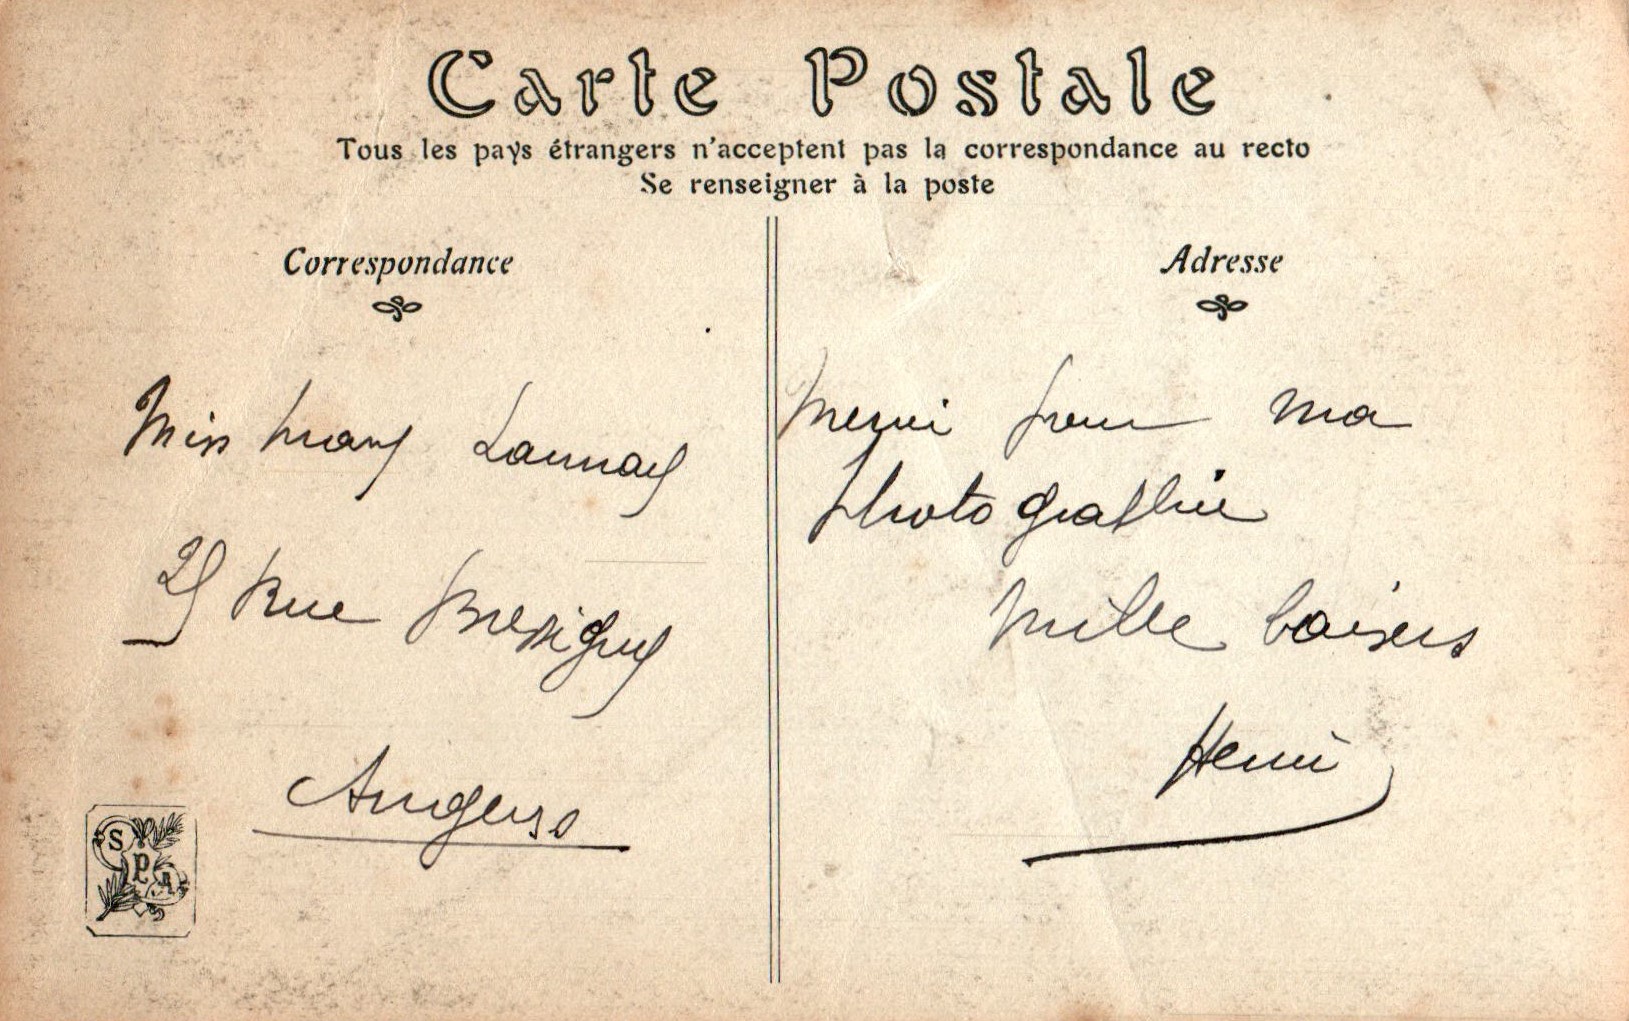 Carte Postale
Tous les pays étrangers n'acceptent pas la correspondance au recto
Se renseigner à la poste
Correspondance
Miss Mary Launay
25 Rue Bressigny
Angers
SPA
Adresse
Merci pour ma
photographie
Mille baisers
Henri